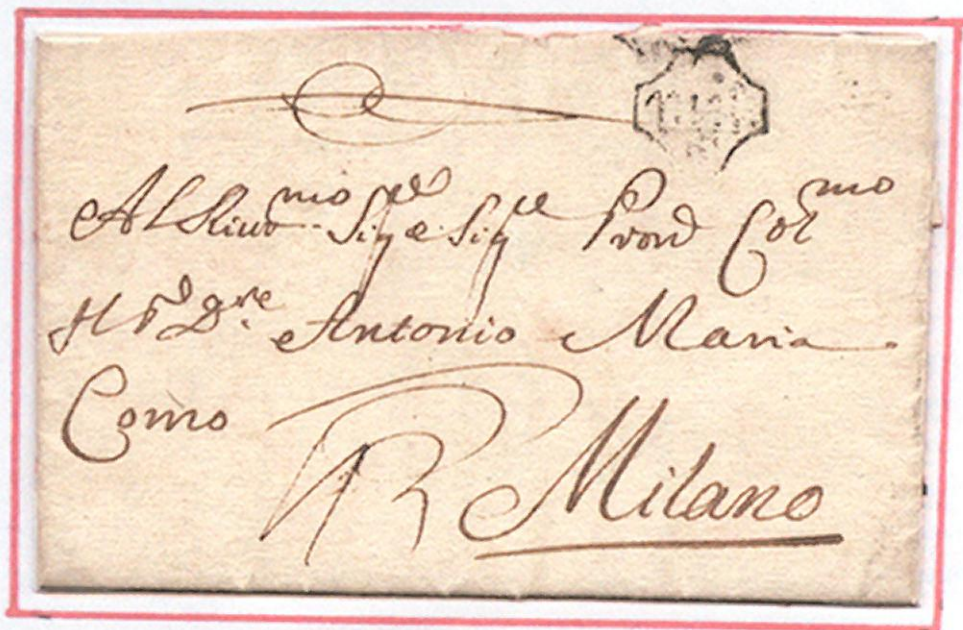 All Illmo Sigre e Sigre Pron Colmo
Il Sr Dre Antonio Maria
Como
Milano